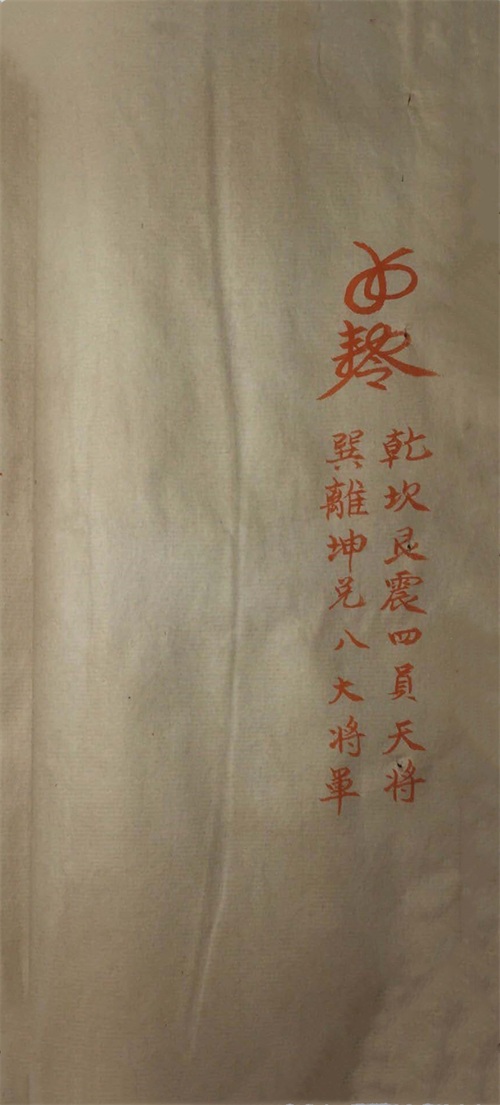 乾坎艮震四員天将
巽離坤兑八大将軍